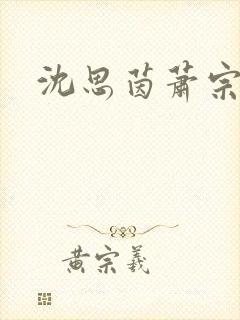 沈思茵萧宗
黄宗羲